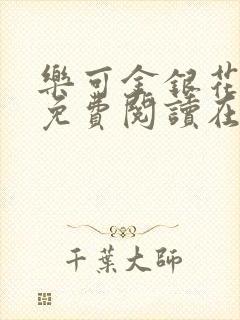 樂可金銀花
免費閱讀在
千葉大師